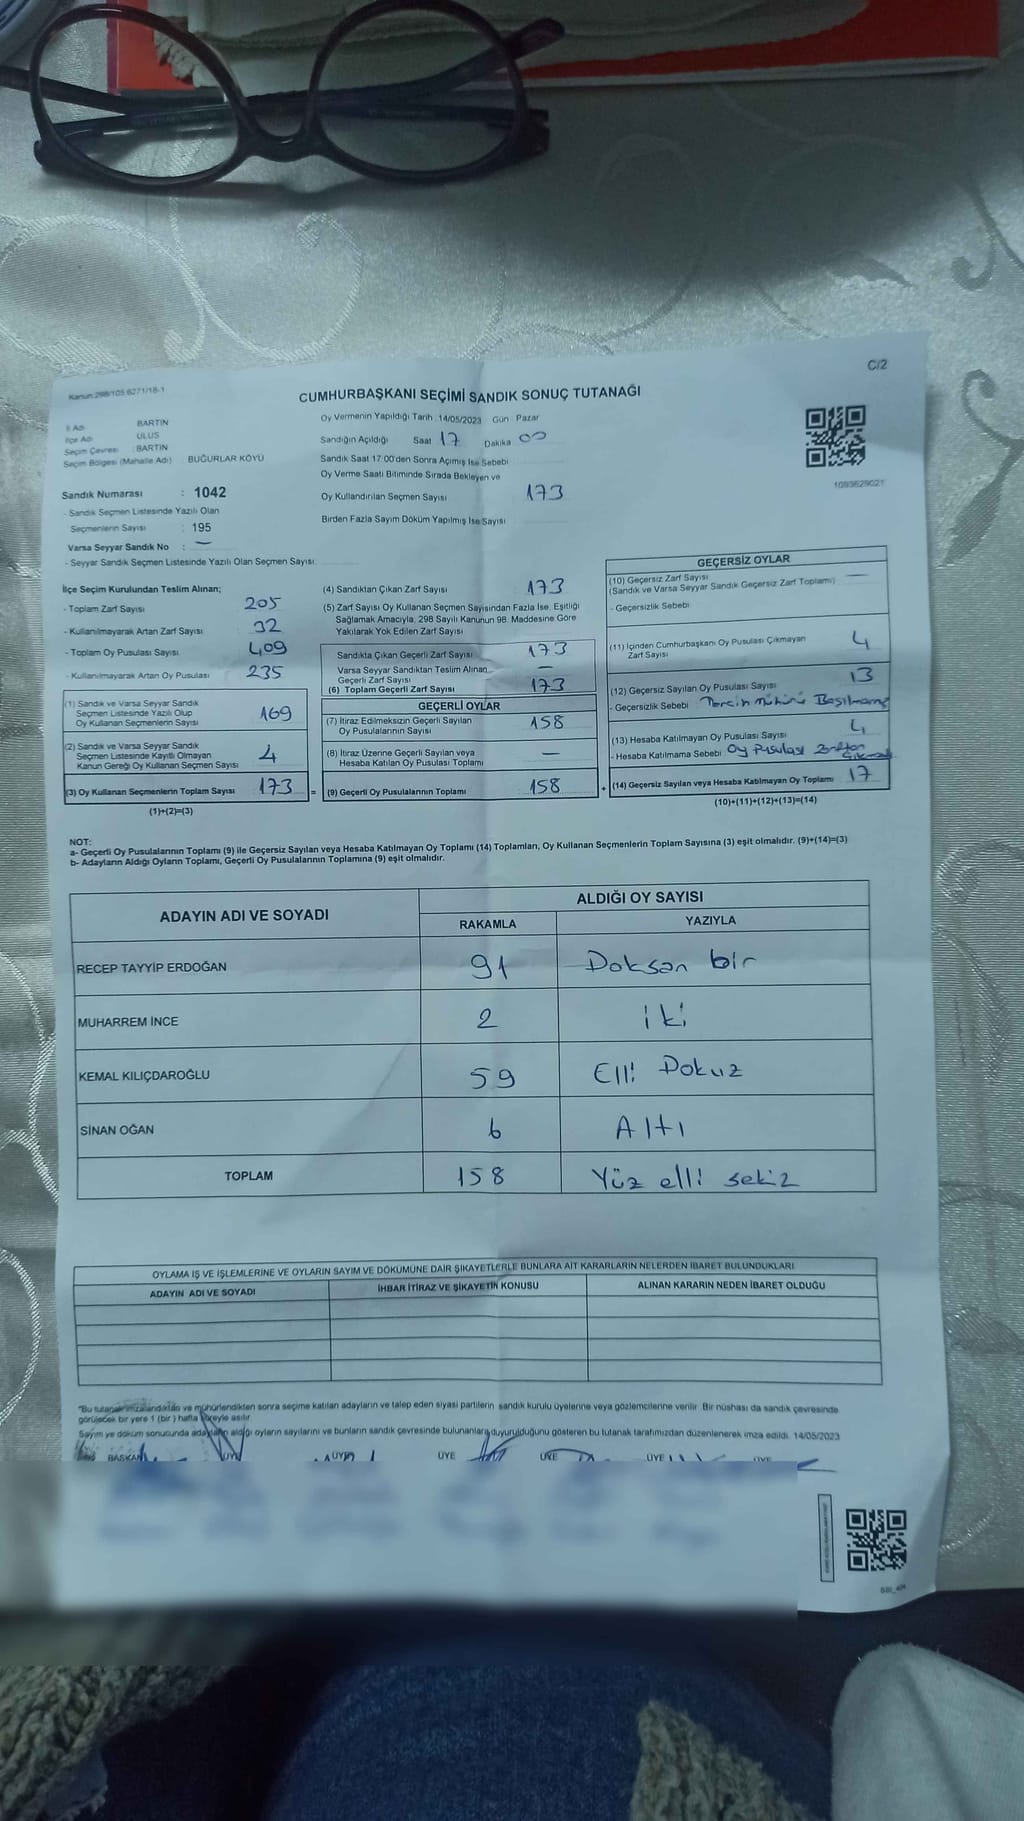 C/2
Kanun:298/105 6271/18-1
CUMHURBAŞKANI SEÇİMİ SANDIK SONUÇ TUTANAĞI
İl Adı BARTIN
İlçe Adı ULUS
Seçim Çevresi : BARTIN
Seçim Bölgesi (Mahalle Adı) : BUĞURLAR KÖYÜ
Sandık Numarası : 1042
- Sandık Seçmen Listesinde Yazılı Olan
Seçmenlerin Sayısı : 195
Varsa Seyyar Sandık No : —
- Seyyar Sandık Seçmen Listesinde Yazılı Olan Seçmen Sayısı:
Oy Vermenin Yapıldığı Tarih :14/05/2023 Gün : Pazar
Sandığın Açıldığı Saat 17 Dakika 00
Sandık Saat 17:00'den Sonra Açımış İse Sebebi
Oy Verme Saati Bitiminde Sırada Bekleyen ve
Oy Kullandırılan Seçmen Sayısı 173
Birden Fazla Sayım Döküm Yapılmış İse Sayısı
1093629021
İlçe Seçim Kurulundan Teslim Alınan;
- Toplam Zarf Sayısı 205
- Kullanılmayarak Artan Zarf Sayısı 32
- Toplam Oy Pusulası Sayısı 409
- Kullanılmayarak Artan Oy Pusulası 235
(1) Sandık ve Varsa Seyyar Sandık
Seçmen Listesinde Yazılı Olup
Oy Kullanan Seçmenlerin Sayısı 169
(2) Sandık ve Varsa Seyyar Sandık
Seçmen Listesinde Kayıtlı Olmayan
Kanun Gereği Oy Kullanan Seçmen Sayısı 4
(3) Oy Kullanan Seçmenlerin Toplam Sayısı 173 =
(1)+(2)=(3)
(4) Sandıktan Çıkan Zarf Sayısı 173
(5) Zarf Sayısı Oy Kullanan Seçmen Sayısından Fazla İse, Eşitliği
Sağlamak Amacıyla, 298 Sayılı Kanunun 98. Maddesine Göre
Yakılarak Yok Edilen Zarf Sayısı
Sandıkta Çıkan Geçerli Zarf Sayısı 173
Varsa Seyyar Sandıktan Teslim Alınan
Geçerli Zarf Sayısı —
(6) Toplam Geçerli Zarf Sayısı 173
GEÇERLİ OYLAR
(7) İtiraz Edilmeksizin Geçerli Sayılan
Oy Pusulalarının Sayısı 158
(8) İtiraz Üzerine Geçerli Sayılan veya
Hesaba Katılan Oy Pusulası Toplamı —
(9) Geçerli Oy Pusulalarının Toplamı 158 +
GEÇERSİZ OYLAR
(10) Geçersiz Zarf Sayısı —
(Sandık ve Varsa Seyyar Sandık Geçersiz Zarf Toplamı)
- Geçersizlik Sebebi
(11) İçinden Cumhurbaşkanı Oy Pusulası Çıkmayan
Zarf Sayısı 4
(12) Geçersiz Sayılan Oy Pusulası Sayısı 13
- Geçersizlik Sebebi Tercih mührü Basılmamış
(13) Hesaba Katılmayan Oy Pusulası Sayısı 4
- Hesaba Katılmama Sebebi Oy Pusulası Zarftan
(14) Geçersiz Sayılan veya Hesaba Katılmayan Oy Toplamı 17
(10)+(11)+(12)+(13)=(14)
NOT:
a- Geçerli Oy Pusulalarının Toplamı (9) ile Geçersiz Sayılan veya Hesaba Katılmayan Oy Toplamı (14) Toplamları, Oy Kullanan Seçmenlerin Toplam Sayısına (3) eşit olmalıdır. (9)+(14)=(3)
b- Adayların Aldığı Oyların Toplamı, Geçerli Oy Pusulalarının Toplamına (9) eşit olmalıdır.
ADAYIN ADI VE SOYADI ALDIĞI OY SAYISI
RAKAMLA YAZIYLA
RECEP TAYYİP ERDOĞAN 91 Doksan bir
MUHARREM İNCE 2 iki
KEMAL KILIÇDAROĞLU 59 Elli Dokuz
SİNAN OĞAN 6 Altı
TOPLAM 158 Yüz elli sekiz
OYLAMA İŞ VE İŞLEMLERİNE VE OYLARIN SAYIM VE DÖKÜMÜNE DAİR ŞİKAYETLERLE BUNLARA AİT KARARLARIN NELERDEN İBARET BULUNDUKLARI
ADAYIN ADI VE SOYADI İHBAR İTİRAZ VE ŞİKAYETİN KONUSU ALINAN KARARIN NEDEN İBARET OLDUĞU
"Bu tutanak imzalandıktan ve mühürlendikten sonra seçime katılan adayların ve talep eden siyasi partilerin sandık kurulu üyelerine veya gözlemcilerine verilir. Bir nüshası da sandık çevresinde
görülecek bir yere 1 (bir) hafta süreyle asılır.
Sayım ve döküm sonucunda adayların aldığı oyların sayılarını ve bunların sandık çevresinde bulunanlara duyurulduğunu gösteren bu tutanak tarafımızdan düzenlenerek imza edildi. 14/05/2023
BAŞKAN ÜYE ÜYE ÜYE ÜYE ÜYE ÜYE